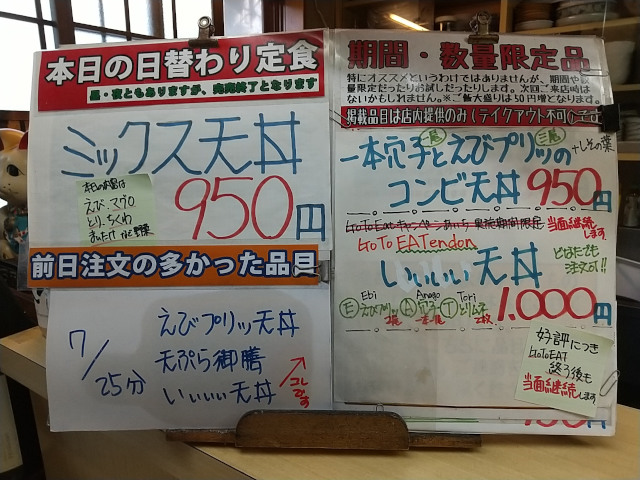 本日の日替わり定食
昼・夜ともありますが、完売終了となります
ミックス天丼
本日の内容は
えび、マグロ
とり、ちくわ
まいたけ など 野菜
950円
前日注文の多かった品目
7/25分
えびプリッ天丼
天ぷら御膳
いぃぃぃ天丼
コレです
期間・数量限定品
特にオススメというわけではありませんが、期間や数
量限定だったりお試しだったりします。次回ご来店時は
ないかもしれません。※ご飯大盛りは50円増となります。
掲載品目は店内提供のみ(テイクアウト不可)
一本穴子とえびプリッの
一尾 三尾 +しその葉
コンビ天丼 950円
GoToEatキャンペーンあいち 実施期間限定 当面継続します。
GoTo EATendon
いぃぃぃ天丼
どなたでも
注文可!!
Ebi Anago Tori
Ⓔえびプリッ Ⓐ穴子 Ⓣとりムネ
2尾 一尾 2枚
1,000円
好評につき
GoToEAT
終了後も
当面継続します